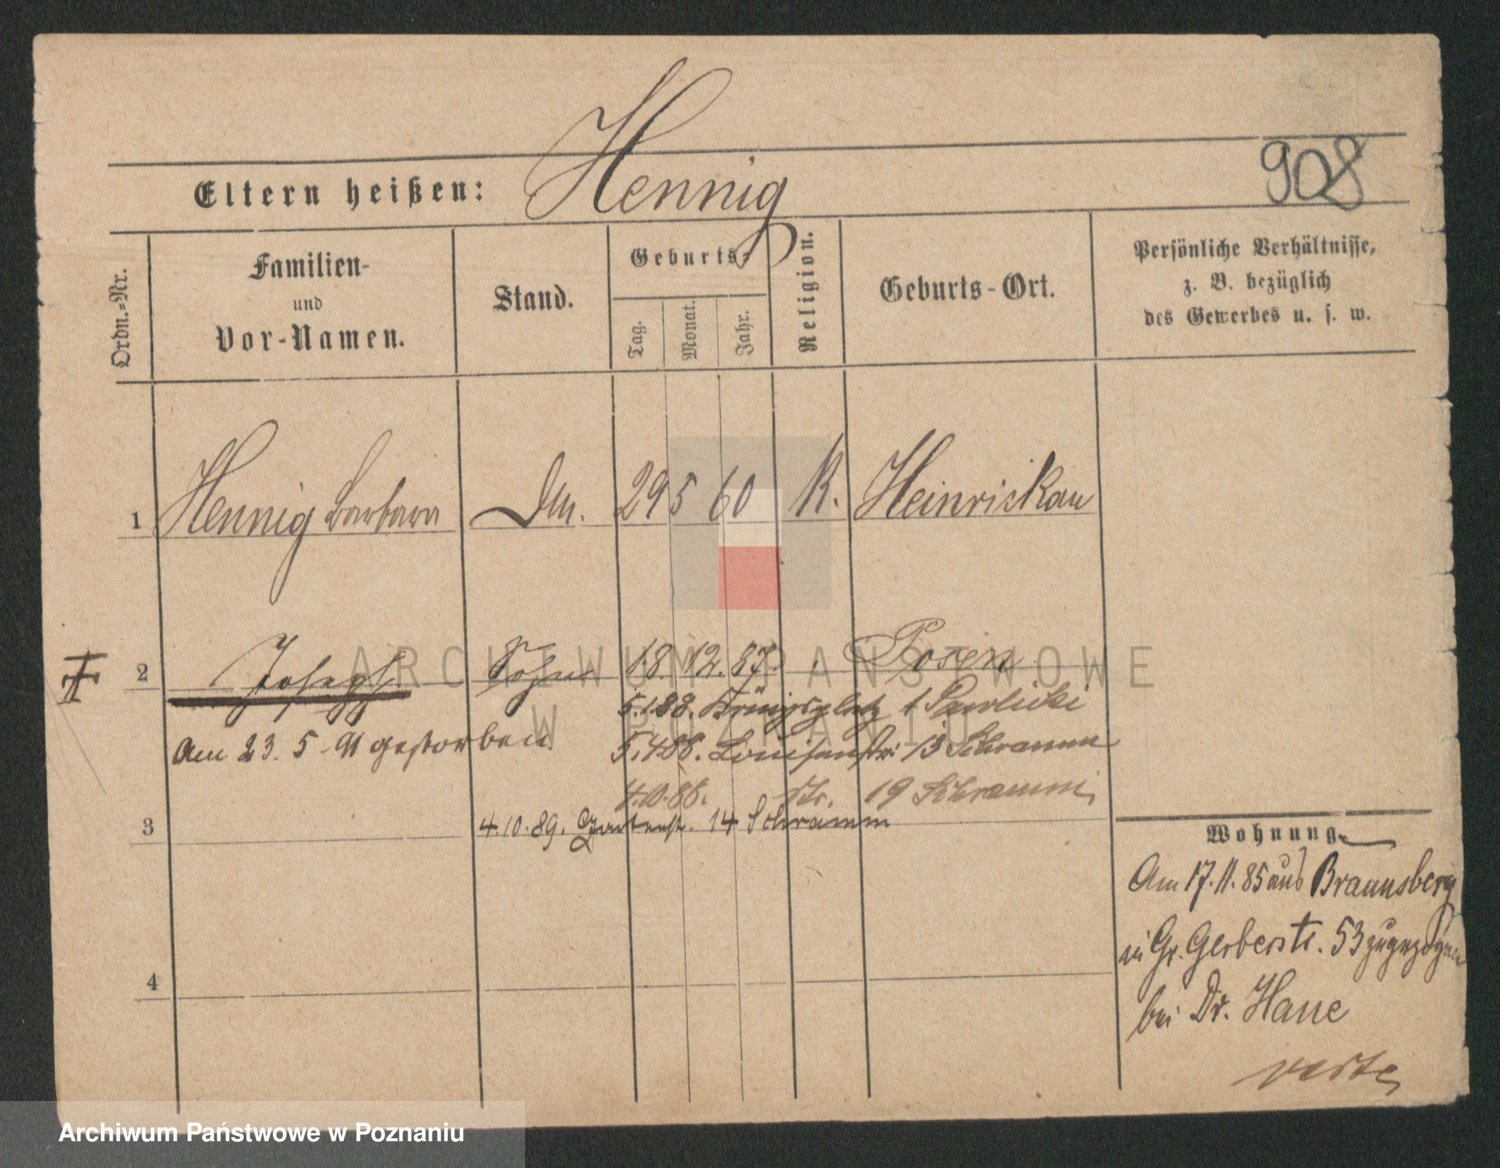 908
Eltern heißen: Hennig
Ordn.-Nr.
Familien-
und
Vor-Namen.
Stand.
Geburts-
Tag.
Monat.
Jahr.
Religion.
Geburts-Ort.
Persönliche Verhältnisse,
z. B. bezüglich
des Gewerbes u. s. w.
1 Hennig Barbara Dm. 29 5 60 K. Heinrickau
2 Joseph Sohn 18. 12. 87. Posen
5.1.88. Königsplatz 1 Pawlicki
Am 23. 5. 91 gestorben
5.4.88. Louisenstr. 13 Schramm
4.10.88. Str. 19 Schramm
3
4.10.89. Gartenstr. 14 Schramm
4
Wohnung.
Am 17.11.85 aus Braunsberg
in Gr. Gerberstr. 53 zugezogen
bei Dr. Haue
verte
ARCHIWUM PAŃSTWOWE
W POZNANIU
Archiwum Państwowe w Poznaniu